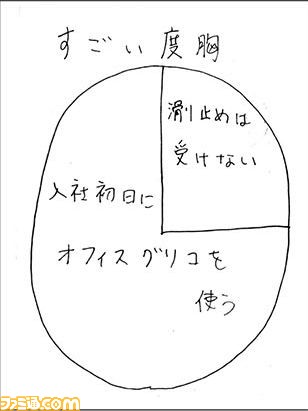 すごい度胸
滑り止めは
受けない
入社初日に
オフィスグリコを
使う
ファミ通.com